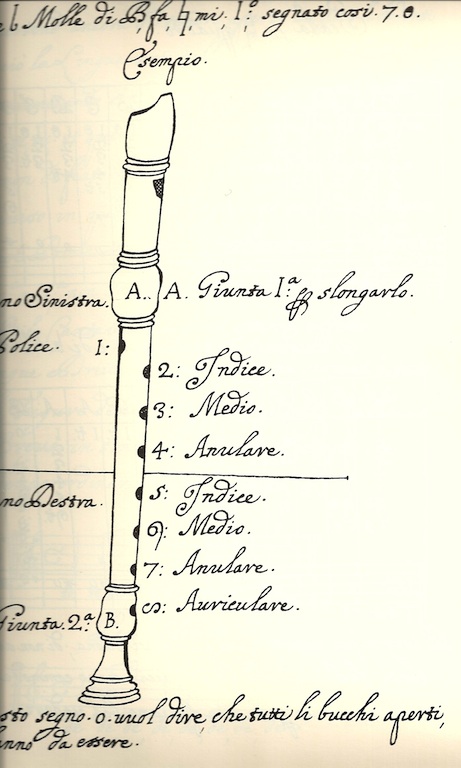 b Molle di B, fa, ♮ mi, 1.º segnato cosi. 7. e.
Esempio.
no Sinistra. A.. A. Giunta I:ª slongarlo.
Police. 1:
2: Indice.
3: Medio.
4: Anulare.
no Destra. 5: Indice.
6: Medio.
7: Anulare.
Giunta. 2.ª B. 8: Auriculare.
sto segno. o. vuol dire, che tutti li bucchi aperti,
anno da essere.